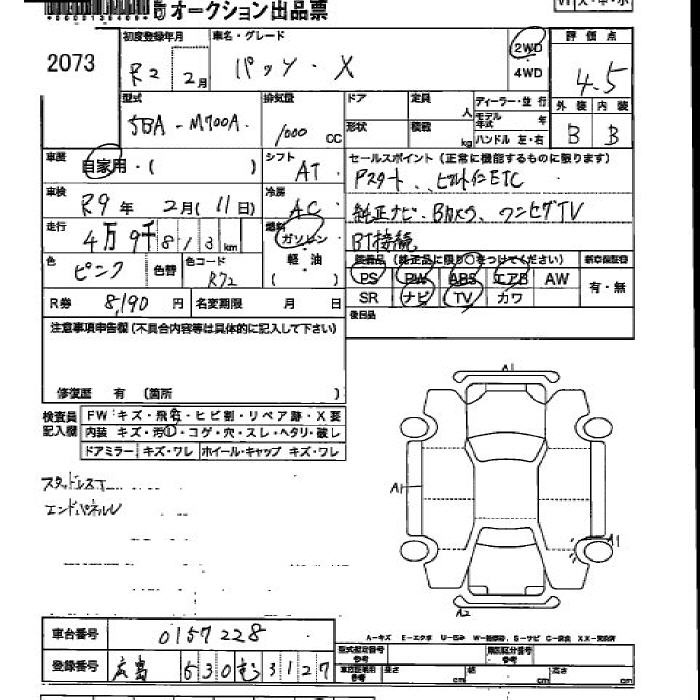 オークション出品票
2073
初度登録年月 R2 2月
車名・グレード パッソ・X
2WD
4WD
評価点 4.5
型式 5BA-M700A
排気量 1000 CC
ドア 形状
定員 人
積載 kg
ディーラー・並行
モデル年式 年
ハンドル 左・右
外装 B
内装 B
車歴 自家用・( )
シフト AT
セールスポイント(正常に機能するものに限ります)
Pスタート、ビルトインETC
車検 R9年 2月(11日)
冷房 AC
純正ナビ、Bカメラ、ワンセグTV
走行 4万9千813km
燃料 ガソリン 軽・油 ( )
BT接続
色 ピンク 色替 色コード R72
装備品(純正品に限り○をつけてください)
新車保証書
PS PW ABS エアB AW
有・無
SR ナビ TV カワ
R券 8,190円 名変期限 月 日
後日品
注意事項申告欄(不具合内容等は具体的に記入して下さい)
修復歴 有 (箇所 )
検査員記入欄
FW キズ・飛石・ヒビ割・リペア跡・X要
内装 キズ・汚・コゲ・穴・スレ・ヘタリ・破し
ドアミラー キズ・ワレ ホイール・キャップ キズ・ワレ
スタッドレス
エンドパネルU
A1
A1
A1
A2
車台番号 0157228
A-キズ E-エクボ U-凹み
登録番号 広島 530 む 3127
型式指定番号 参考
類別区分番号 参考
長さ cm 幅 cm 高さ cm